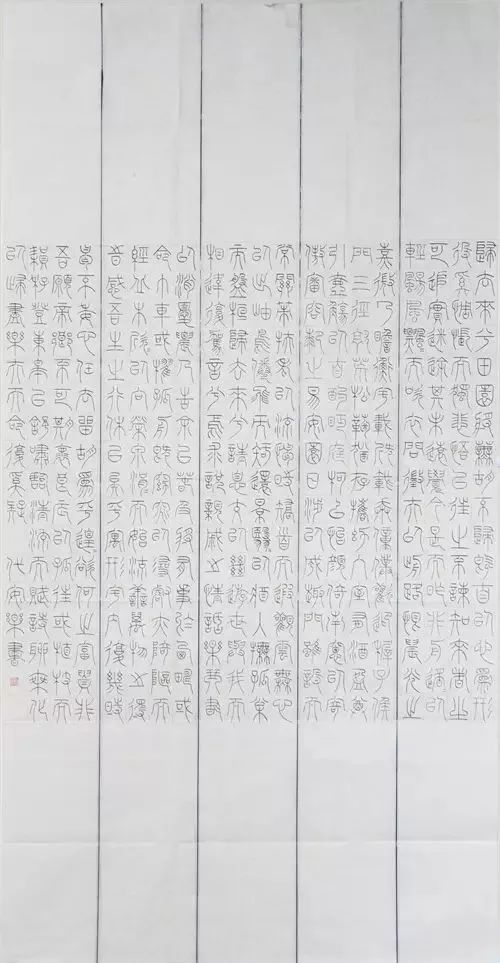 歸去來兮田園將蕪胡不歸既自以心為形
役奚惆悵而獨悲悟已往之不諫知來者之
可追實迷途其未遠覺今是而昨非舟遙遙以
輕颺風飄飄而吹衣問征夫以前路恨晨光之
熹微乃瞻衡宇載欣載奔僮僕歡迎稚子候
門三徑就荒松菊猶存攜幼入室有酒盈樽
引壺觴以自酌眄庭柯以怡顏倚南窗以寄
傲審容膝之易安園日涉以成趣門雖設而
常關策扶老以流憩時矯首而遐觀雲無心
以出岫鳥倦飛而知還景翳翳以將入撫孤松
而盤桓歸去來兮請息交以絕遊世與我而
相違復駕言兮焉求悅親戚之情話樂琴書
以消憂農人告余以春及將有事於西疇或
命巾車或棹孤舟既窈窕以尋壑亦崎嶇而
經丘木欣欣以向榮泉涓涓而始流善萬物之得
時感吾生之行休已矣乎寓形宇內復幾時
曷不委心任去留胡為乎遑遑欲何之富貴非
吾願帝鄉不可期懷良辰以孤往或植杖而
耘耔登東皋以舒嘯臨清流而賦詩聊乘化
以歸盡樂夫天命復奚疑 代安樂書